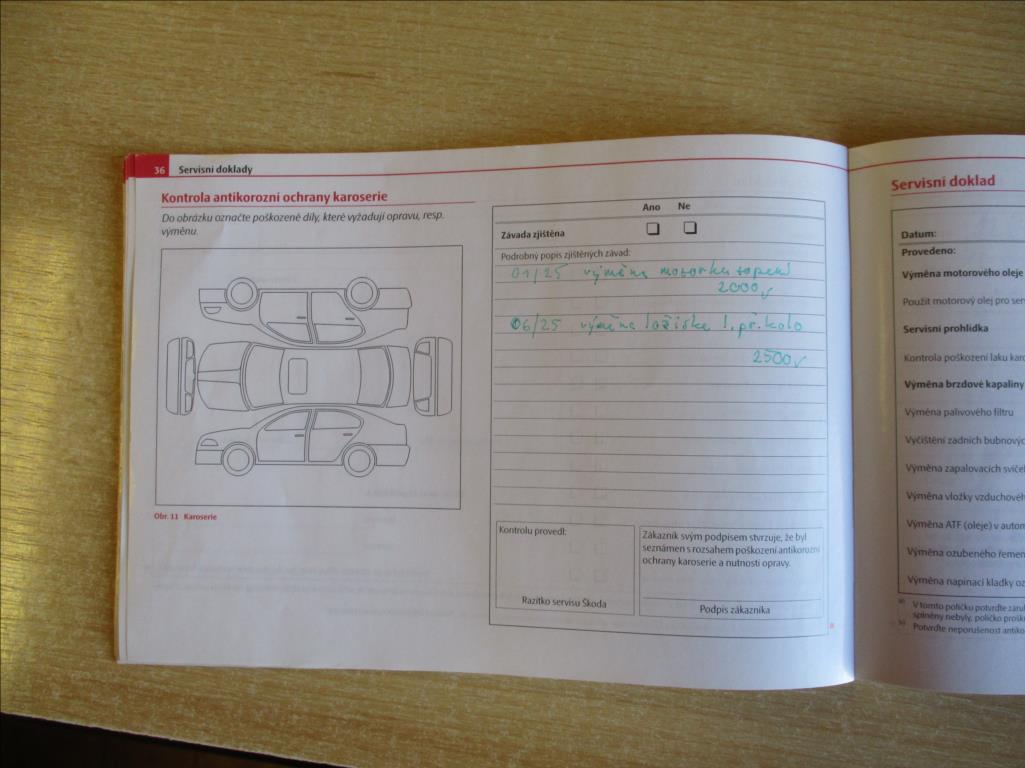 36 Servisní doklady
Kontrola antikorozní ochrany karoserie
Do obrázku označte poškozené díly, které vyžadují opravu, resp.
výměnu.
Obr. 11 Karoserie
Ano Ne
Závada zjištěna
Podrobný popis zjištěných závad:
01/25 výměna motorku topení
2000,-
06/25 výměna ložiska l. př. kolo
2500,-
Kontrolu provedl:
Razítko servisu Škoda
Zákazník svým podpisem stvrzuje, že byl
seznámen s rozsahem poškození antikorozní
ochrany karoserie a nutností opravy.
Podpis zákazníka
Servisní doklad
Datum:
Provedeno:
Výměna motorového oleje
Použit motorový olej pro ser
Servisní prohlídka
Kontrola poškození laku karo
Výměna brzdové kapaliny
Výměna palivového filtru
Vyčištění zadních bubnovýc
Výměna zapalovacích svíče
Výměna vložky vzduchovéh
Výměna ATF (oleje) v autom
Výměna ozubeného řemen
Výměna napínací kladky oz
a) V tomto políčku potvrďte záruk
splněny nebyly, políčko prošk
b) Potvrďte neporušenost antiko